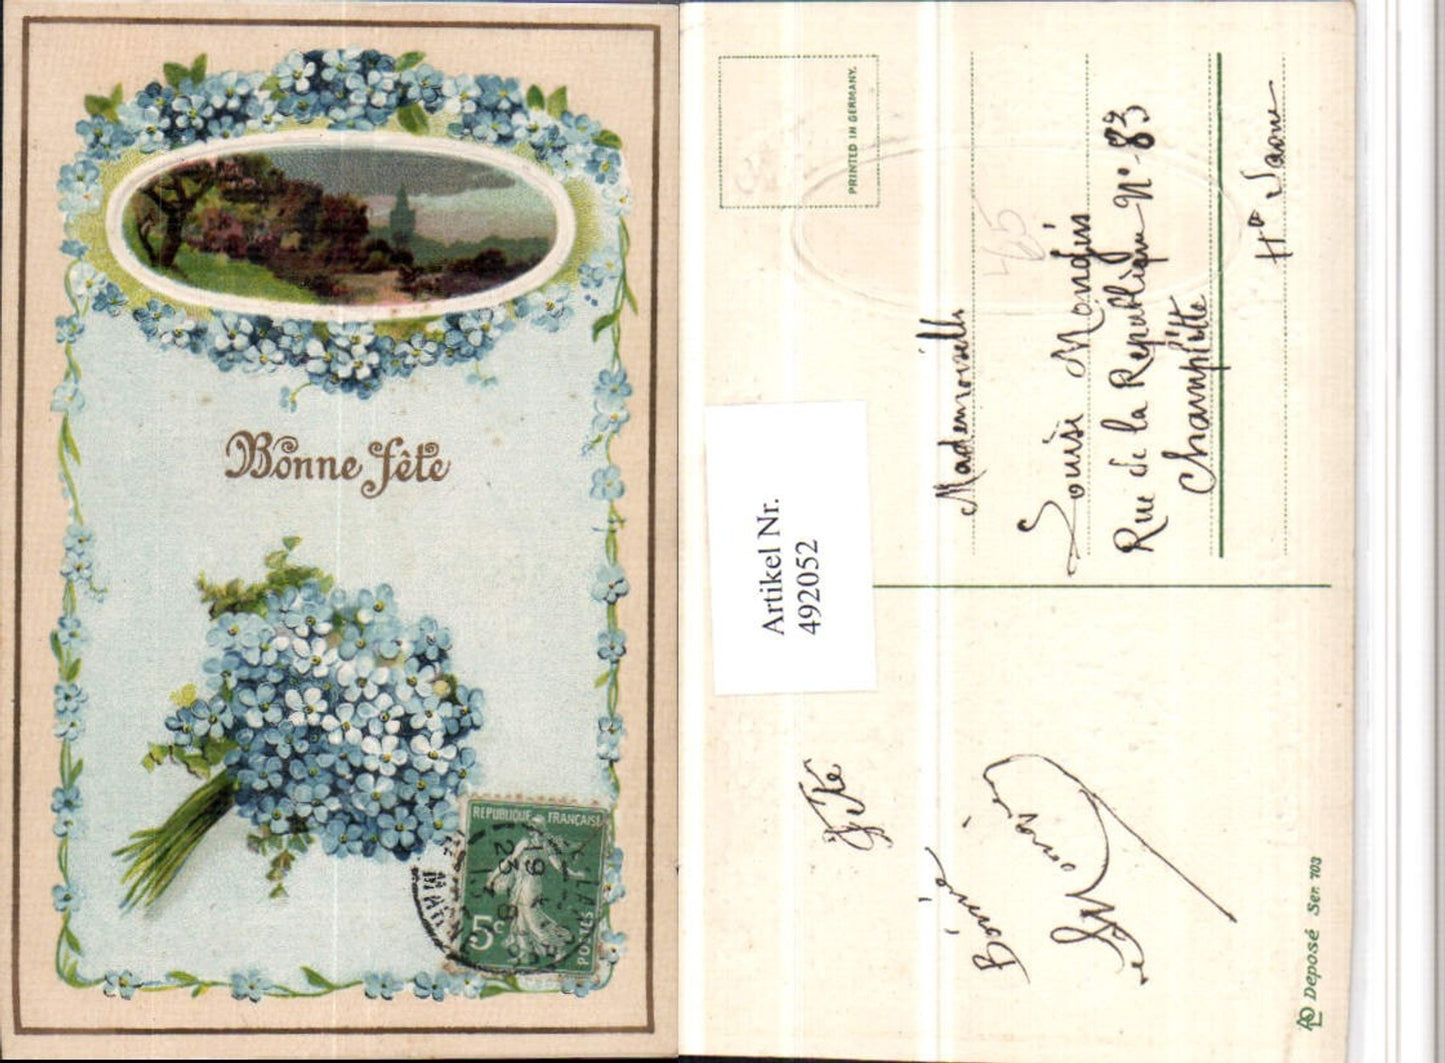 Bonne fête
REPUBLIQUE FRANÇAISE
5c
POSTES
PRINTED IN GERMANY.
Artikel Nr.
492052
465
Mademoiselle
Louise Mongin
Rue de la République N° 83
Champlitte
Hte Saone
Fête
Bonne
Deposé Ser. 703